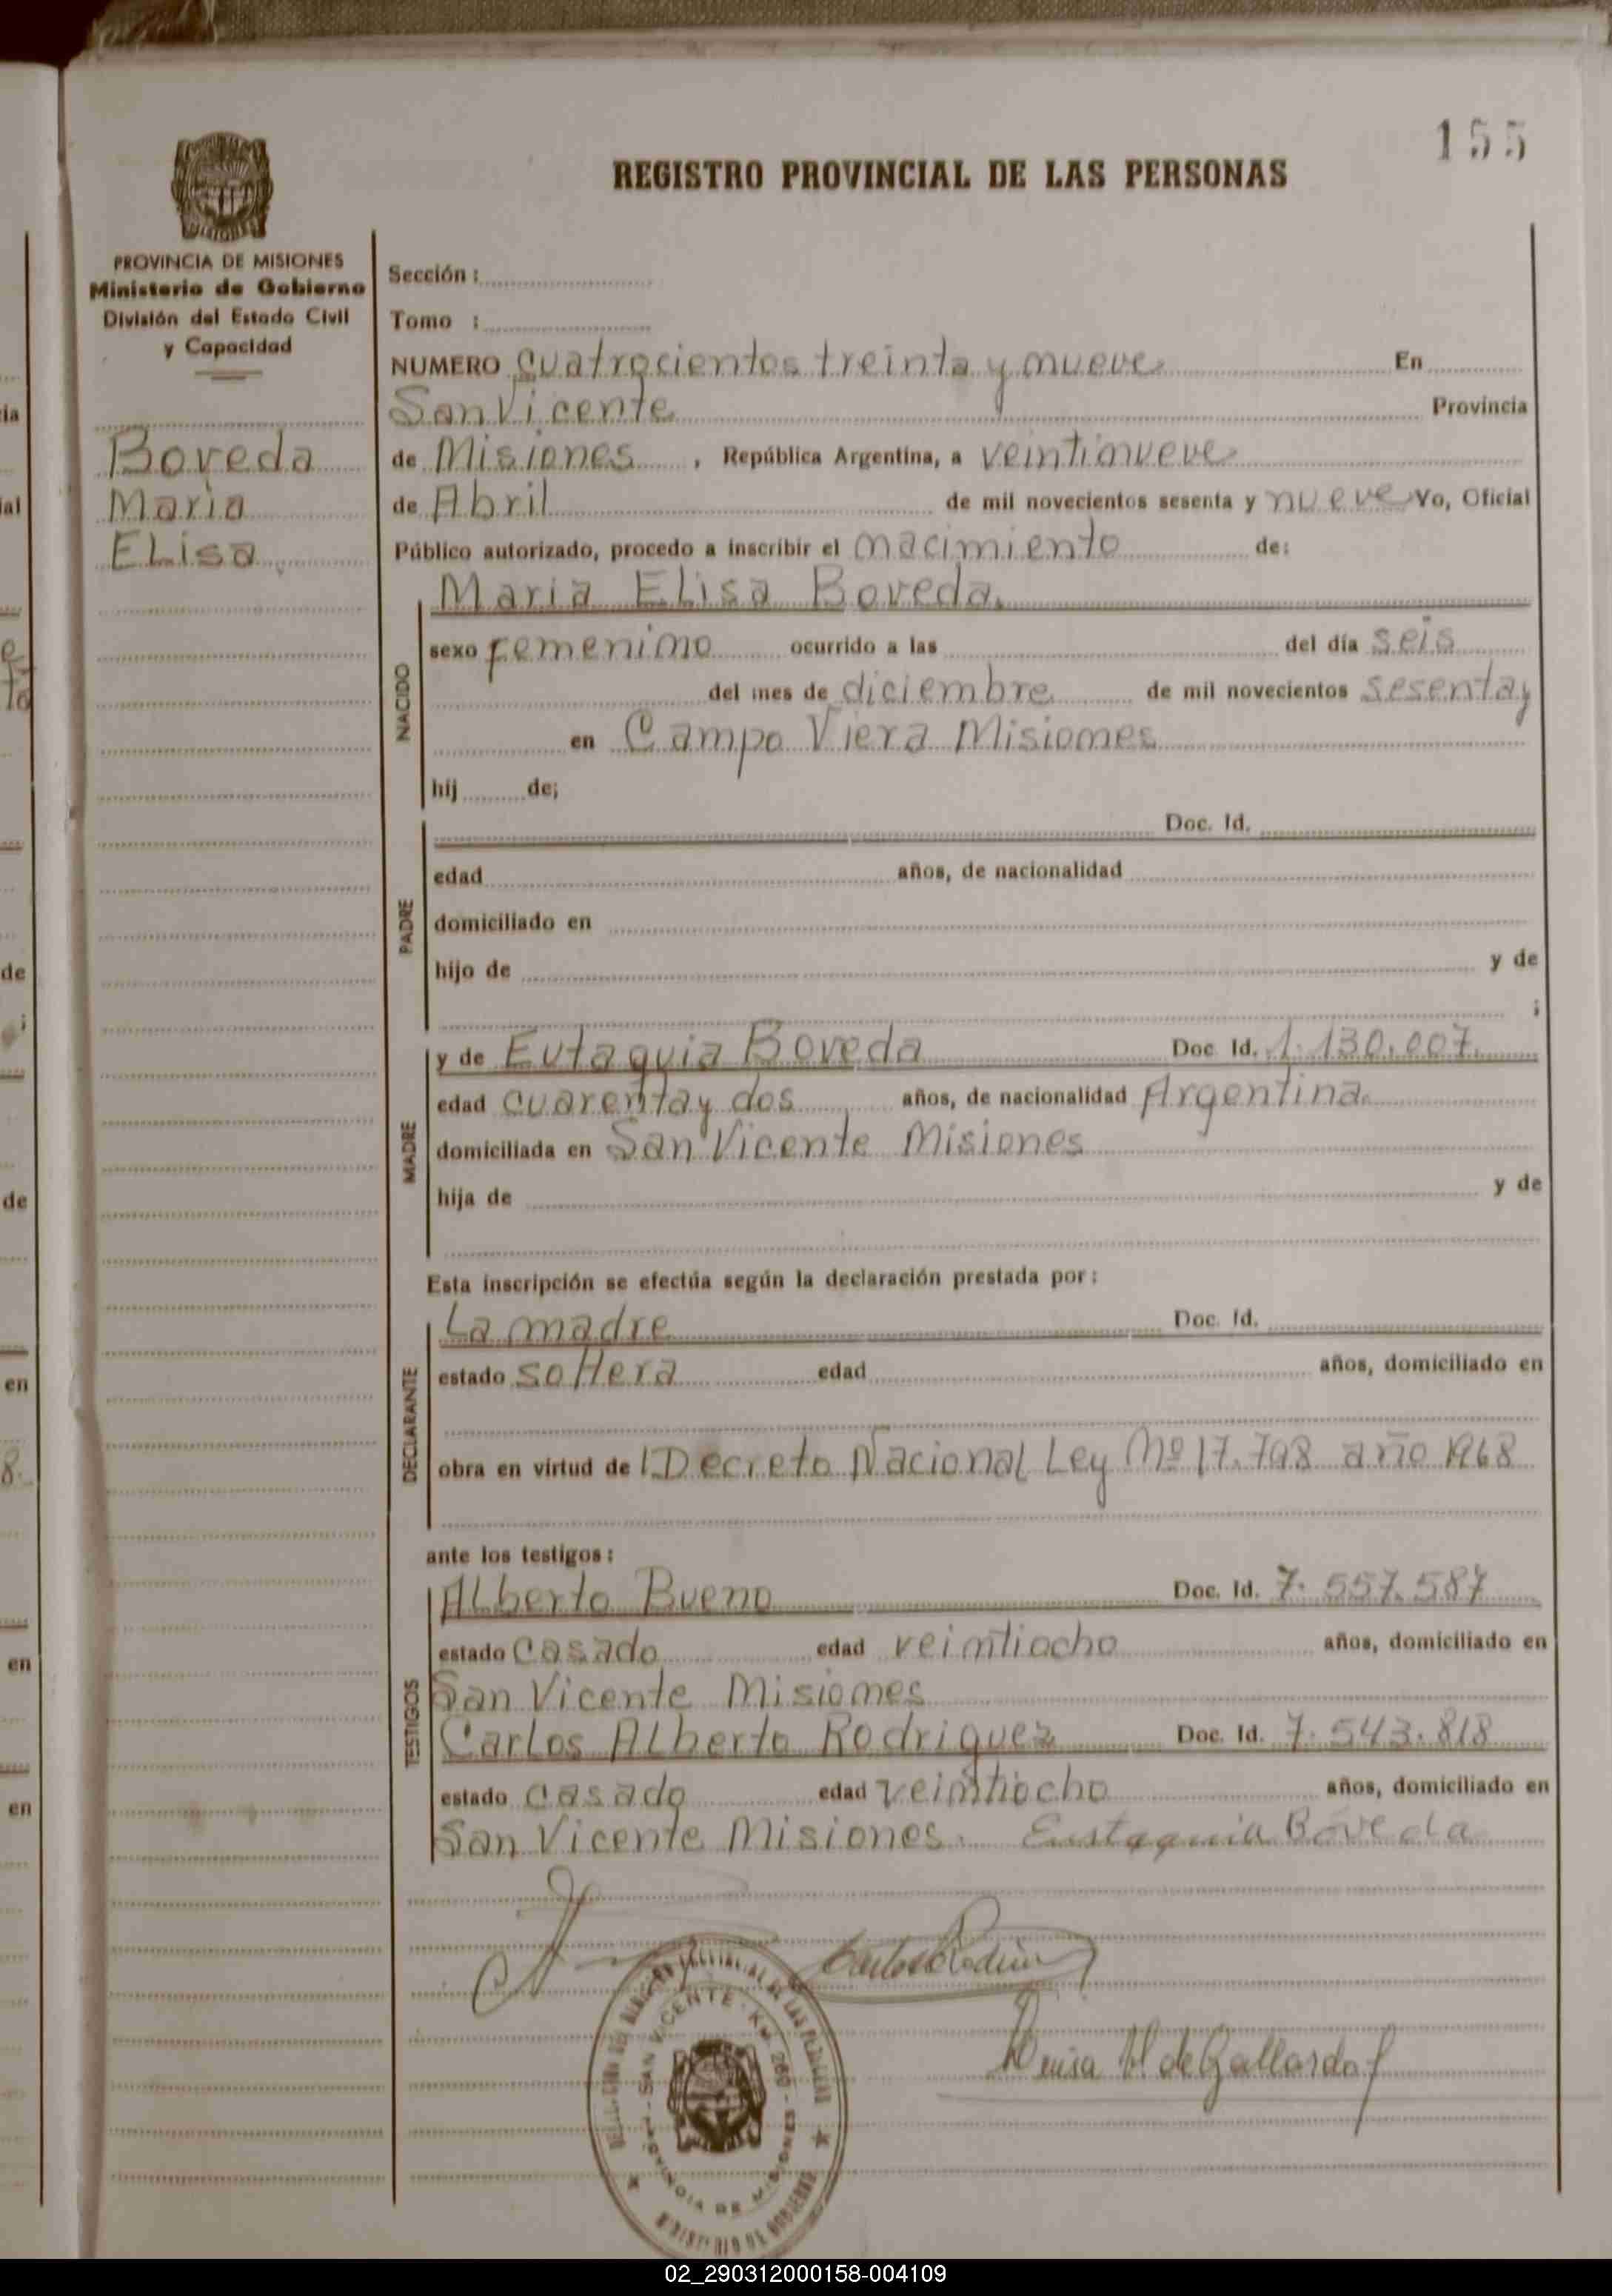 155
REGISTRO PROVINCIAL DE LAS PERSONAS
PROVINCIA DE MISIONES
Ministerio de Gobierno
División del Estado Civil
y Capacidad
Boveda
Maria
ELisa
Sección :
Tomo :
NUMERO Cuatrocientos treinta y nueve En
San Vicente Provincia
de Misiones , República Argentina, a veintinueve
de Abril de mil novecientos sesenta y nueve Yo, Oficial
Público autorizado, procedo a inscribir el nacimiento de:
Maria ELisa Boveda.
NACIDO
sexo femenino ocurrido a las del día seis
del mes de diciembre de mil novecientos sesenta y
en Campo Viera Misiones
hij de;
PADRE
Doc. Id.
edad años, de nacionalidad
domiciliado en
hijo de y de
;
MADRE
y de Eutaquia Boveda Doc Id. 1.130.007.
edad cuarenta y dos años, de nacionalidad Argentina.
domiciliada en San Vicente Misiones
hija de y de
Esta inscripción se efectúa según la declaración prestada por:
DECLARANTE
La madre Doc. Id.
estado soltera edad años, domiciliado en
obra en virtud de Decreto Nacional Ley Nº 17.798 año 1968
ante los testigos:
TESTIGOS
ALberto Bueno Doc. Id. 7.557.587
estado casado edad veintiocho años, domiciliado en
San Vicente Misiones
Carlos ALberto Rodriguez Doc. Id. 7.543.818
estado casado edad veintiocho años, domiciliado en
San Vicente Misiones. Eustaquia Boveda
de Gallardo
SAN VICENTE - KM 260 -
PROVINCIA DE MISIONES
MINISTERIO DE GOBIERNO
02_290312000158-004109